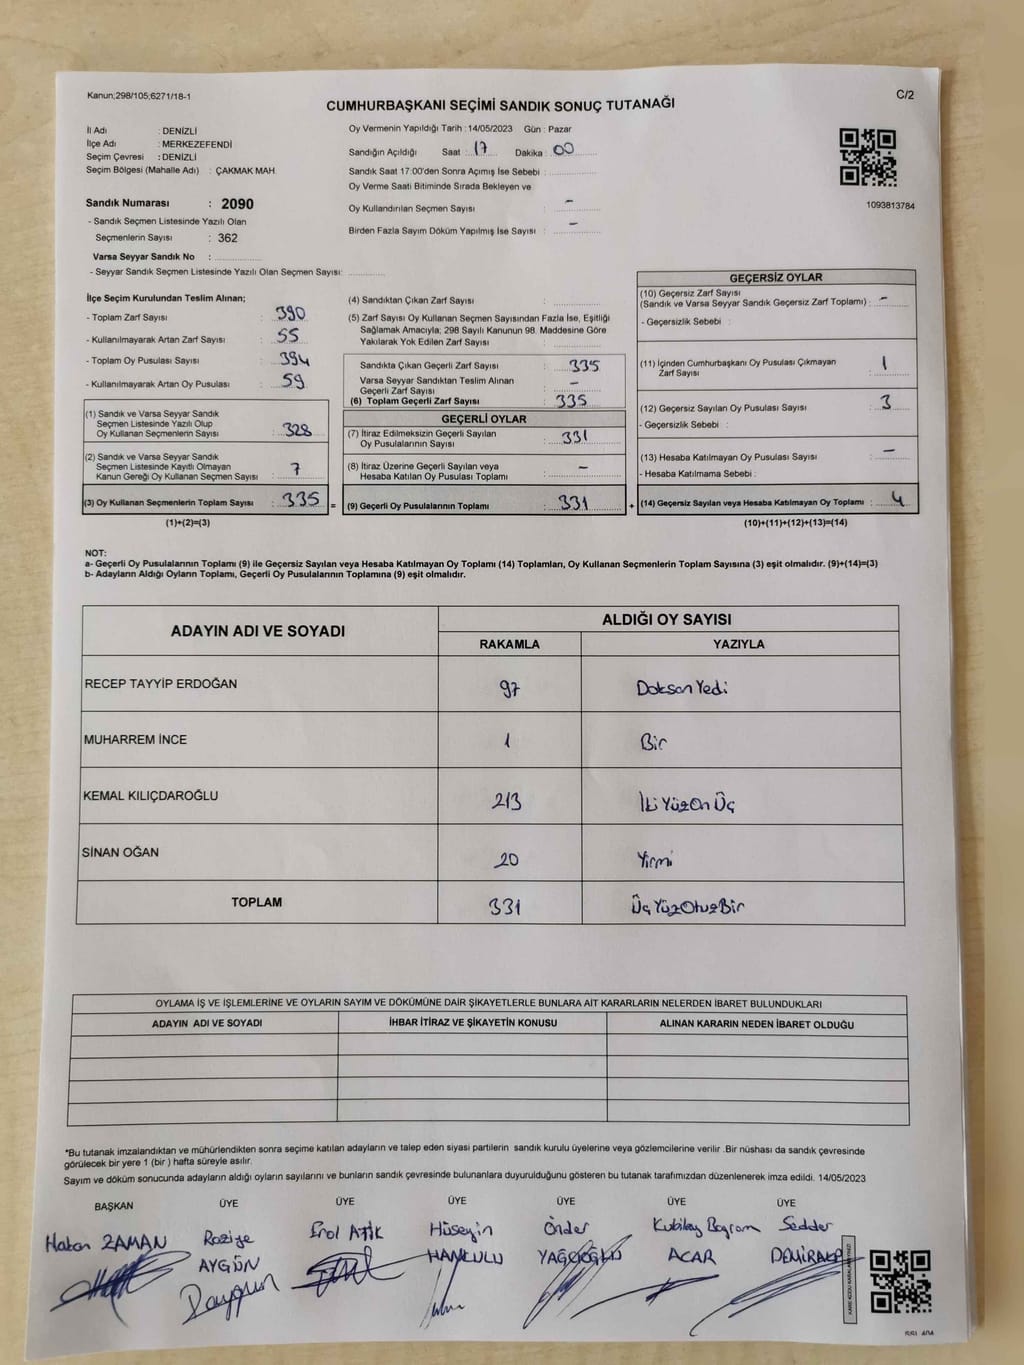 Kanun;298/105;6271/18-1
C/2
CUMHURBAŞKANI SEÇİMİ SANDIK SONUÇ TUTANAĞI
İl Adı : DENİZLİ
İlçe Adı : MERKEZEFENDİ
Seçim Çevresi : DENİZLİ
Seçim Bölgesi (Mahalle Adı) : ÇAKMAK MAH.
Sandık Numarası : 2090
- Sandık Seçmen Listesinde Yazılı Olan
Seçmenlerin Sayısı : 362
Varsa Seyyar Sandık No :
- Seyyar Sandık Seçmen Listesinde Yazılı Olan Seçmen Sayısı:
Oy Vermenin Yapıldığı Tarih : 14/05/2023 Gün : Pazar
Sandığın Açıldığı Saat : 17 Dakika : 00
Sandık Saat 17:00'den Sonra Açımış İse Sebebi :
Oy Verme Saati Bitiminde Sırada Bekleyen ve
Oy Kullandırılan Seçmen Sayısı : -
Birden Fazla Sayım Döküm Yapılmış İse Sayısı : -
1093813784
İlçe Seçim Kurulundan Teslim Alınan;
- Toplam Zarf Sayısı : 390
- Kullanılmayarak Artan Zarf Sayısı : 55
- Toplam Oy Pusulası Sayısı : 394
- Kullanılmayarak Artan Oy Pusulası : 59
(1) Sandık ve Varsa Seyyar Sandık
Seçmen Listesinde Yazılı Olup
Oy Kullanan Seçmenlerin Sayısı : 328
(2) Sandık ve Varsa Seyyar Sandık
Seçmen Listesinde Kayıtlı Olmayan
Kanun Gereği Oy Kullanan Seçmen Sayısı : 7
(3) Oy Kullanan Seçmenlerin Toplam Sayısı : 335 =
(1)+(2)=(3)
(4) Sandıktan Çıkan Zarf Sayısı :
(5) Zarf Sayısı Oy Kullanan Seçmen Sayısından Fazla İse, Eşitliği
Sağlamak Amacıyla; 298 Sayılı Kanunun 98. Maddesine Göre
Yakılarak Yok Edilen Zarf Sayısı :
Sandıkta Çıkan Geçerli Zarf Sayısı : 335
Varsa Seyyar Sandıktan Teslim Alınan
Geçerli Zarf Sayısı : -
(6) Toplam Geçerli Zarf Sayısı : 335
GEÇERLİ OYLAR
(7) İtiraz Edilmeksizin Geçerli Sayılan
Oy Pusulalarının Sayısı : 331
(8) İtiraz Üzerine Geçerli Sayılan veya
Hesaba Katılan Oy Pusulası Toplamı : -
(9) Geçerli Oy Pusulalarının Toplamı : 331 +
GEÇERSİZ OYLAR
(10) Geçersiz Zarf Sayısı
(Sandık ve Varsa Seyyar Sandık Geçersiz Zarf Toplamı) : -
- Geçersizlik Sebebi :
(11) İçinden Cumhurbaşkanı Oy Pusulası Çıkmayan
Zarf Sayısı : 1
(12) Geçersiz Sayılan Oy Pusulası Sayısı : 3
- Geçersizlik Sebebi :
(13) Hesaba Katılmayan Oy Pusulası Sayısı : -
- Hesaba Katılmama Sebebi :
(14) Geçersiz Sayılan veya Hesaba Katılmayan Oy Toplamı : 4
(10)+(11)+(12)+(13)=(14)
NOT:
a- Geçerli Oy Pusulalarının Toplamı (9) ile Geçersiz Sayılan veya Hesaba Katılmayan Oy Toplamı (14) Toplamları, Oy Kullanan Seçmenlerin Toplam Sayısına (3) eşit olmalıdır. (9)+(14)=(3)
b- Adayların Aldığı Oyların Toplamı, Geçerli Oy Pusulalarının Toplamına (9) eşit olmalıdır.
ADAYIN ADI VE SOYADI ALDIĞI OY SAYISI
RAKAMLA YAZIYLA
RECEP TAYYİP ERDOĞAN 97 Doksan Yedi
MUHARREM İNCE 1 Bir
KEMAL KILIÇDAROĞLU 213 İki Yüz On Üç
SİNAN OĞAN 20 Yirmi
TOPLAM 331 Üç Yüz Otuz Bir
OYLAMA İŞ VE İŞLEMLERİNE VE OYLARIN SAYIM VE DÖKÜMÜNE DAİR ŞİKAYETLERLE BUNLARA AİT KARARLARIN NELERDEN İBARET BULUNDUKLARI
ADAYIN ADI VE SOYADI İHBAR İTİRAZ VE ŞİKAYETİN KONUSU ALINAN KARARIN NEDEN İBARET OLDUĞU
*Bu tutanak imzalandıktan ve mühürlendikten sonra seçime katılan adayların ve talep eden siyasi partilerin sandık kurulu üyelerine veya gözlemcilerine verilir .Bir nüshası da sandık çevresinde
görülecek bir yere 1 (bir ) hafta süreyle asılır.
Sayım ve döküm sonucunda adayların aldığı oyların sayılarını ve bunların sandık çevresinde bulunanlara duyurulduğunu gösteren bu tutanak tarafımızdan düzenlenerek imza edildi. 14/05/2023
BAŞKAN ÜYE ÜYE ÜYE ÜYE ÜYE ÜYE
Hakan ZAMAN Raziye Erol ATİK Hüseyin Önder Kubilay Bayram Sedder
AYGÜN YAĞCIOĞLU ACAR